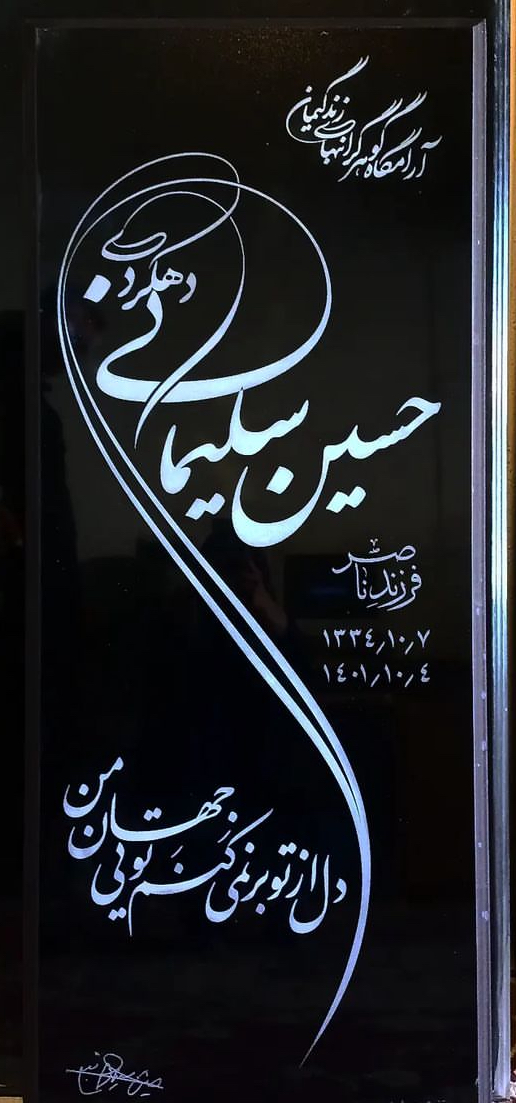 آرامگاه گوهر گرانبهای زندگیمان
حسین سلیمانی
دهکردی
فرزندِ ناصر
۱۳۳٤/۱۰/۷
۱٤۰۱/۱۰/٤
دل از تو برنمی کَنَم تویی جهان من